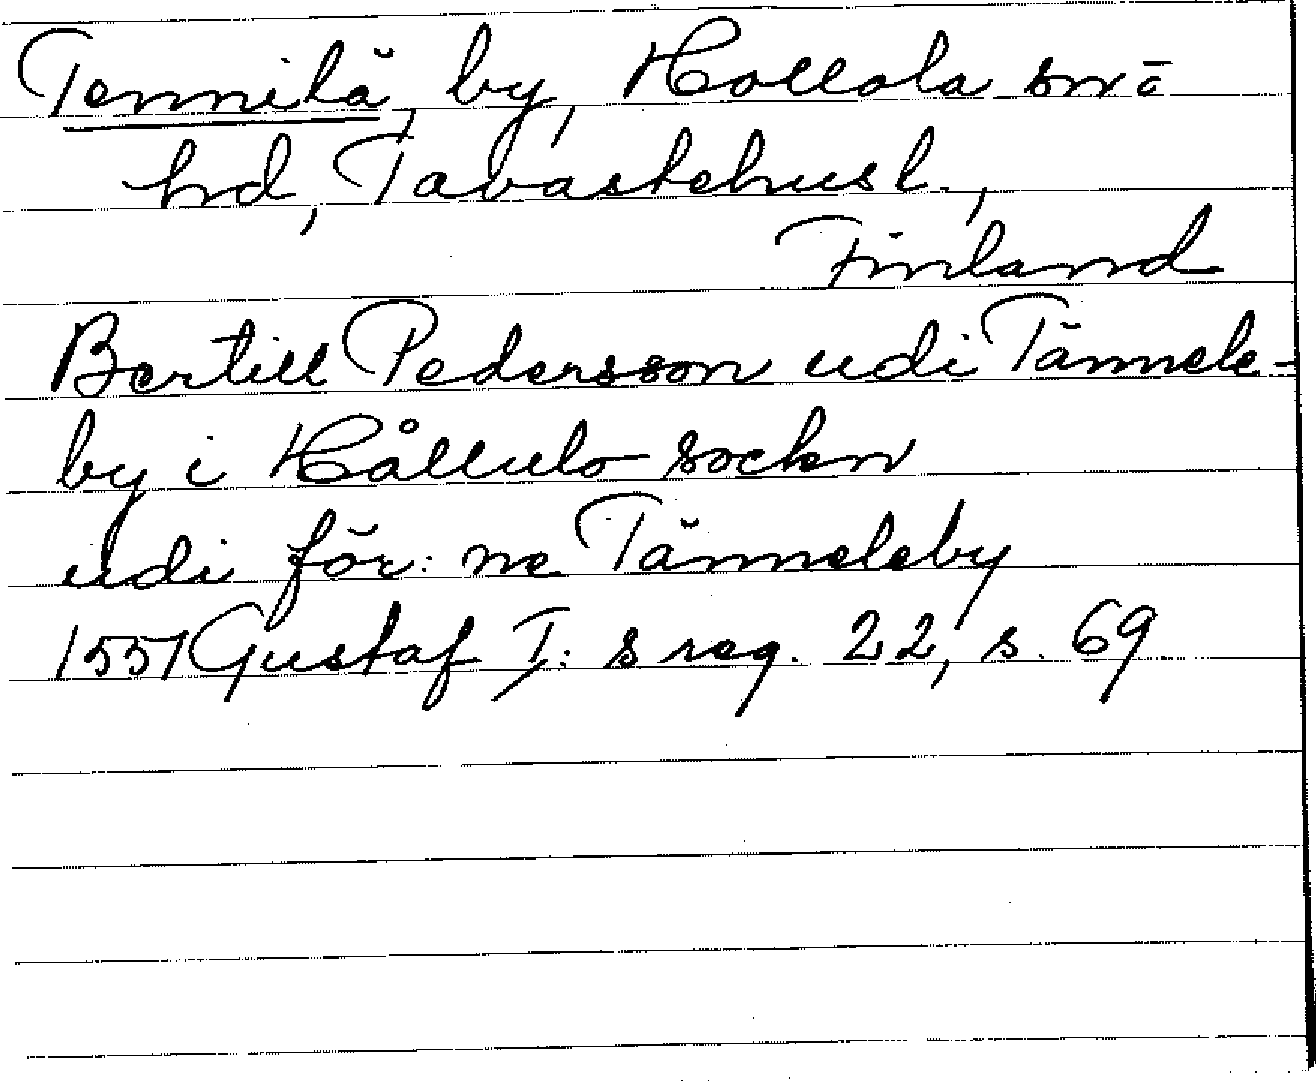 Tennilä, by, Hollola sn o
hd, Tavastehusl.,
Finland
Bertill Pedersson udi Tännele-
by i Hållulo sockn
udi för: ne Tänneleby
1551 Gustaf I: s reg. 22, s. 69.